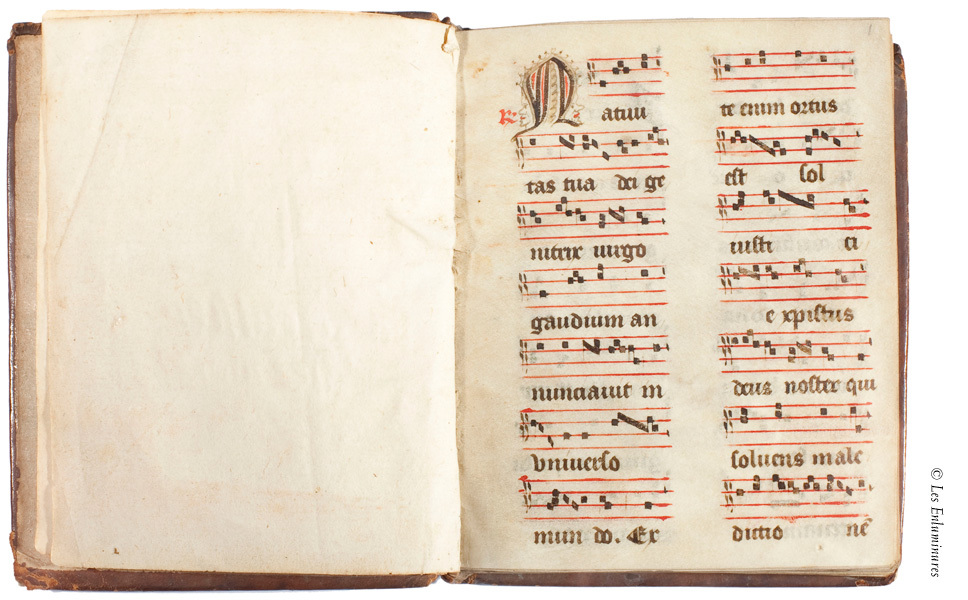 R Natiui
tas tua dei ge
nitrix uirgo
gaudium an
nunciauit in
vniuerso
mun do. Ex
te enim ortus
est sol
iusti ci
e xpistus
deus noster qui
soluens male
dictio nē
© Les Enluminures